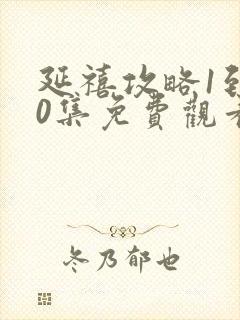 延禧攻略1到
0集免費觀看
冬乃郁也